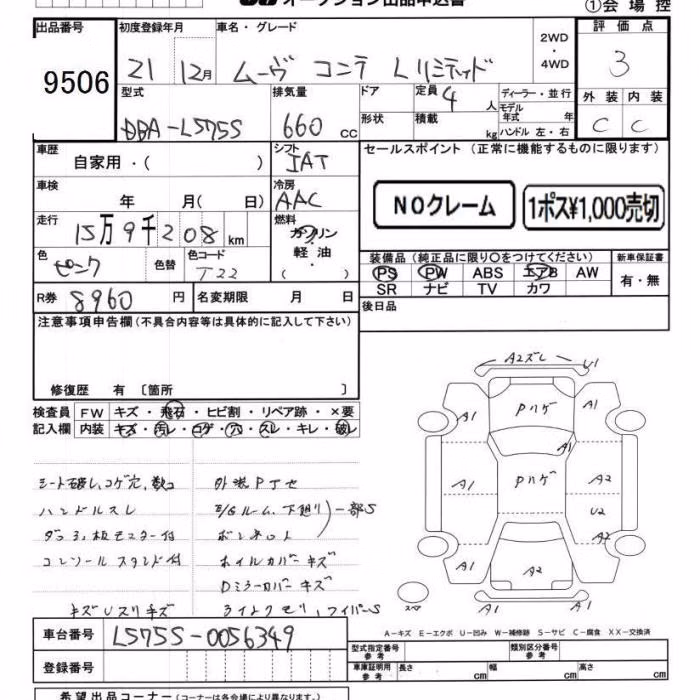 オークション出品申込書
①会場控
出品番号 初度登録年月 車名・グレード 2WD・4WD 評価点
9506 21 12月 ムーヴ コンテ Lリミテッド 3
型式 排気量 ドア 定員 4 人 ディーラー・並行 外装 内装
DBA-L575S 660 cc 形状 積載 kg モデル年式 年 ハンドル 左・右 C C
車歴 シフト セールスポイント (正常に機能するものに限ります)
自家用・( ) IAT
車検 冷房 NOクレーム 1ポス¥1,000売切
年 月( 日) AAC
走行 燃料
15万9千208km ガソリン・軽油・( )
色 色替 色コード 装備品 (純正品に限り○をつけてください) 新車保証書
ピンク T22 PS PW ABS エアB AW 有・無
SR ナビ TV カワ
R券 8960 円 名変期限 月 日 後日品
注意事項申告欄(不具合内容等は具体的に記入して下さい)
修復歴 有 〔箇所 〕
検査員 FW キズ・飛石・ヒビ割・リペア跡・×要
記入欄 内装 キズ・汚レ・コゲ・穴・スレ・キレ・破レ
シート破レ、コゲ穴、 外装
ハンドルスレ E/Gルーム、下廻り 一部S
付 ボンネット
コンソール スタンド付 ホイルカバーキズ
Dミラーカバーキズ
キズUスリキズ ワイパーS
A2スレ U1
A1 Pハゲ A1
A1
A1 Pハゲ A2
U2
A2
A1 A2 A1
スペ
A-キズ E-エクボ U-凹み W-補修跡 S-サビ C-腐食 XX-交換済
車台番号 L575S-0056349 型式指定番号 参考 類別区分番号 参考
登録番号 車庫証明用 参考 長さ cm 幅 cm 高さ cm
希望出品コーナー(コーナーは各会場により異なります。)